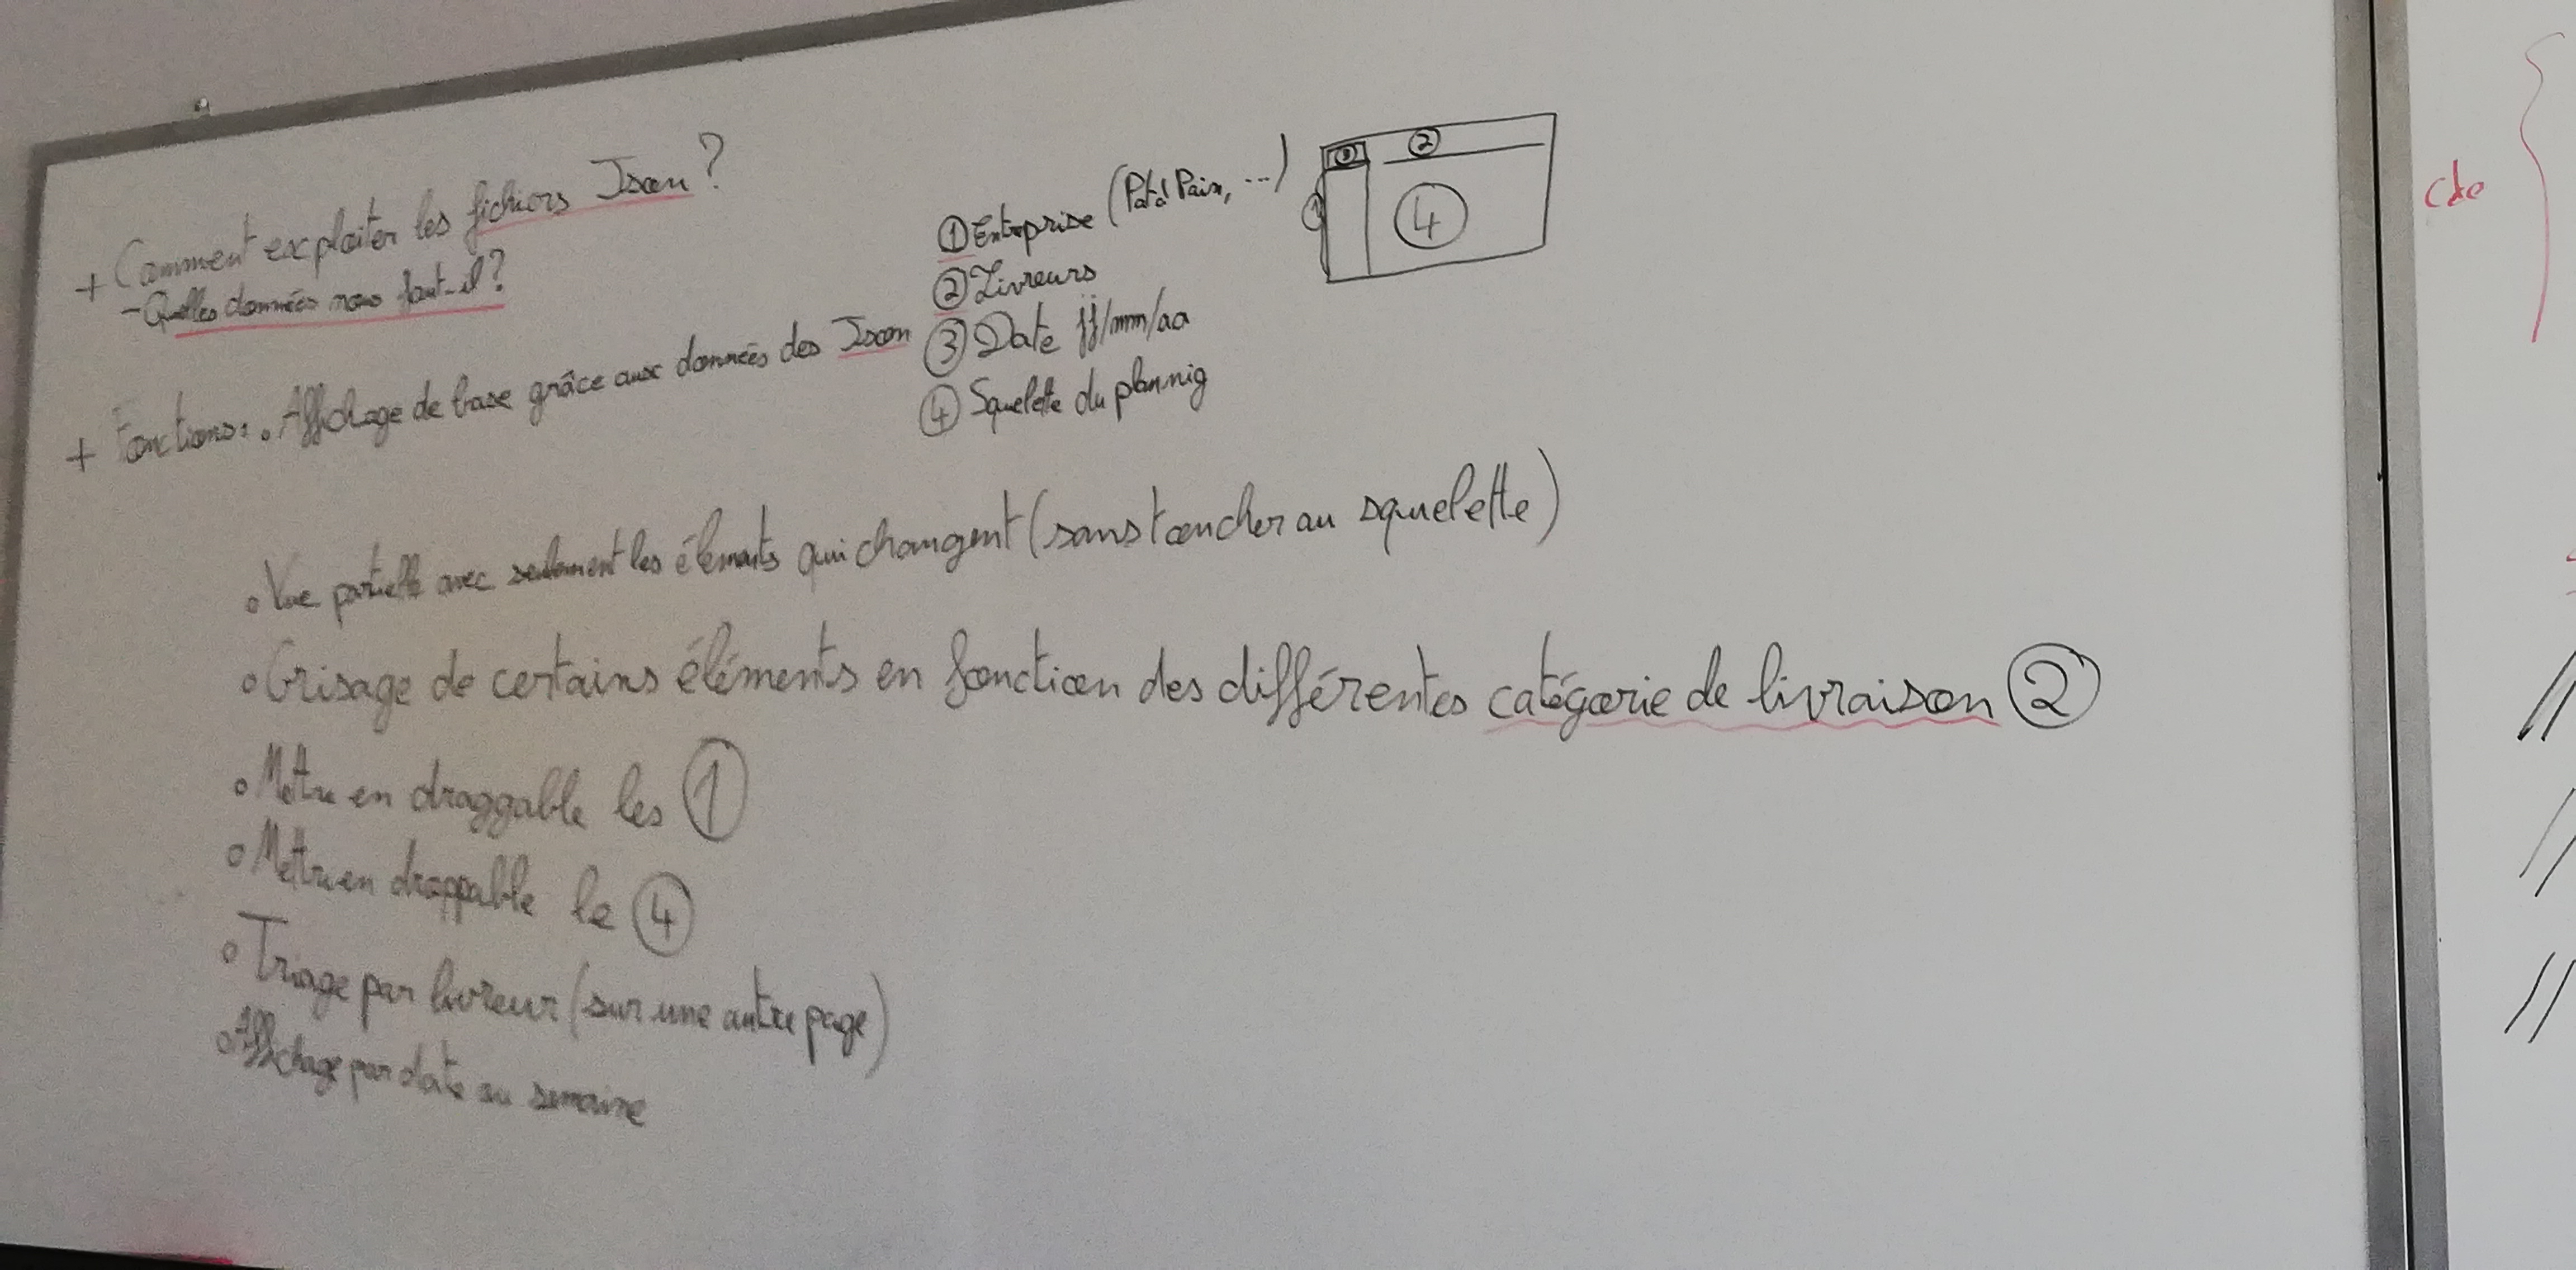 + Comment exploiter les fichiers Json ?
- Quelles données nous faut-il ?
+ Fonctions : • Affichage de base grâce aux données des Json
① Entreprise (Patà Pain, ...)
② Livreurs
③ Date jj/mm/aa
④ Squelette du plannig
③ ②
① ④
• Vue partielle avec seulement les éléments qui changent (sans toucher au squelette)
• Grisage de certains éléments en fonction des différentes catégorie de livraison ②
• Mettre en draggable les ①
• Mettre en droppable le ④
• Triage par livreur (sur une autre page)
• Affichage par date ou semaine
cde